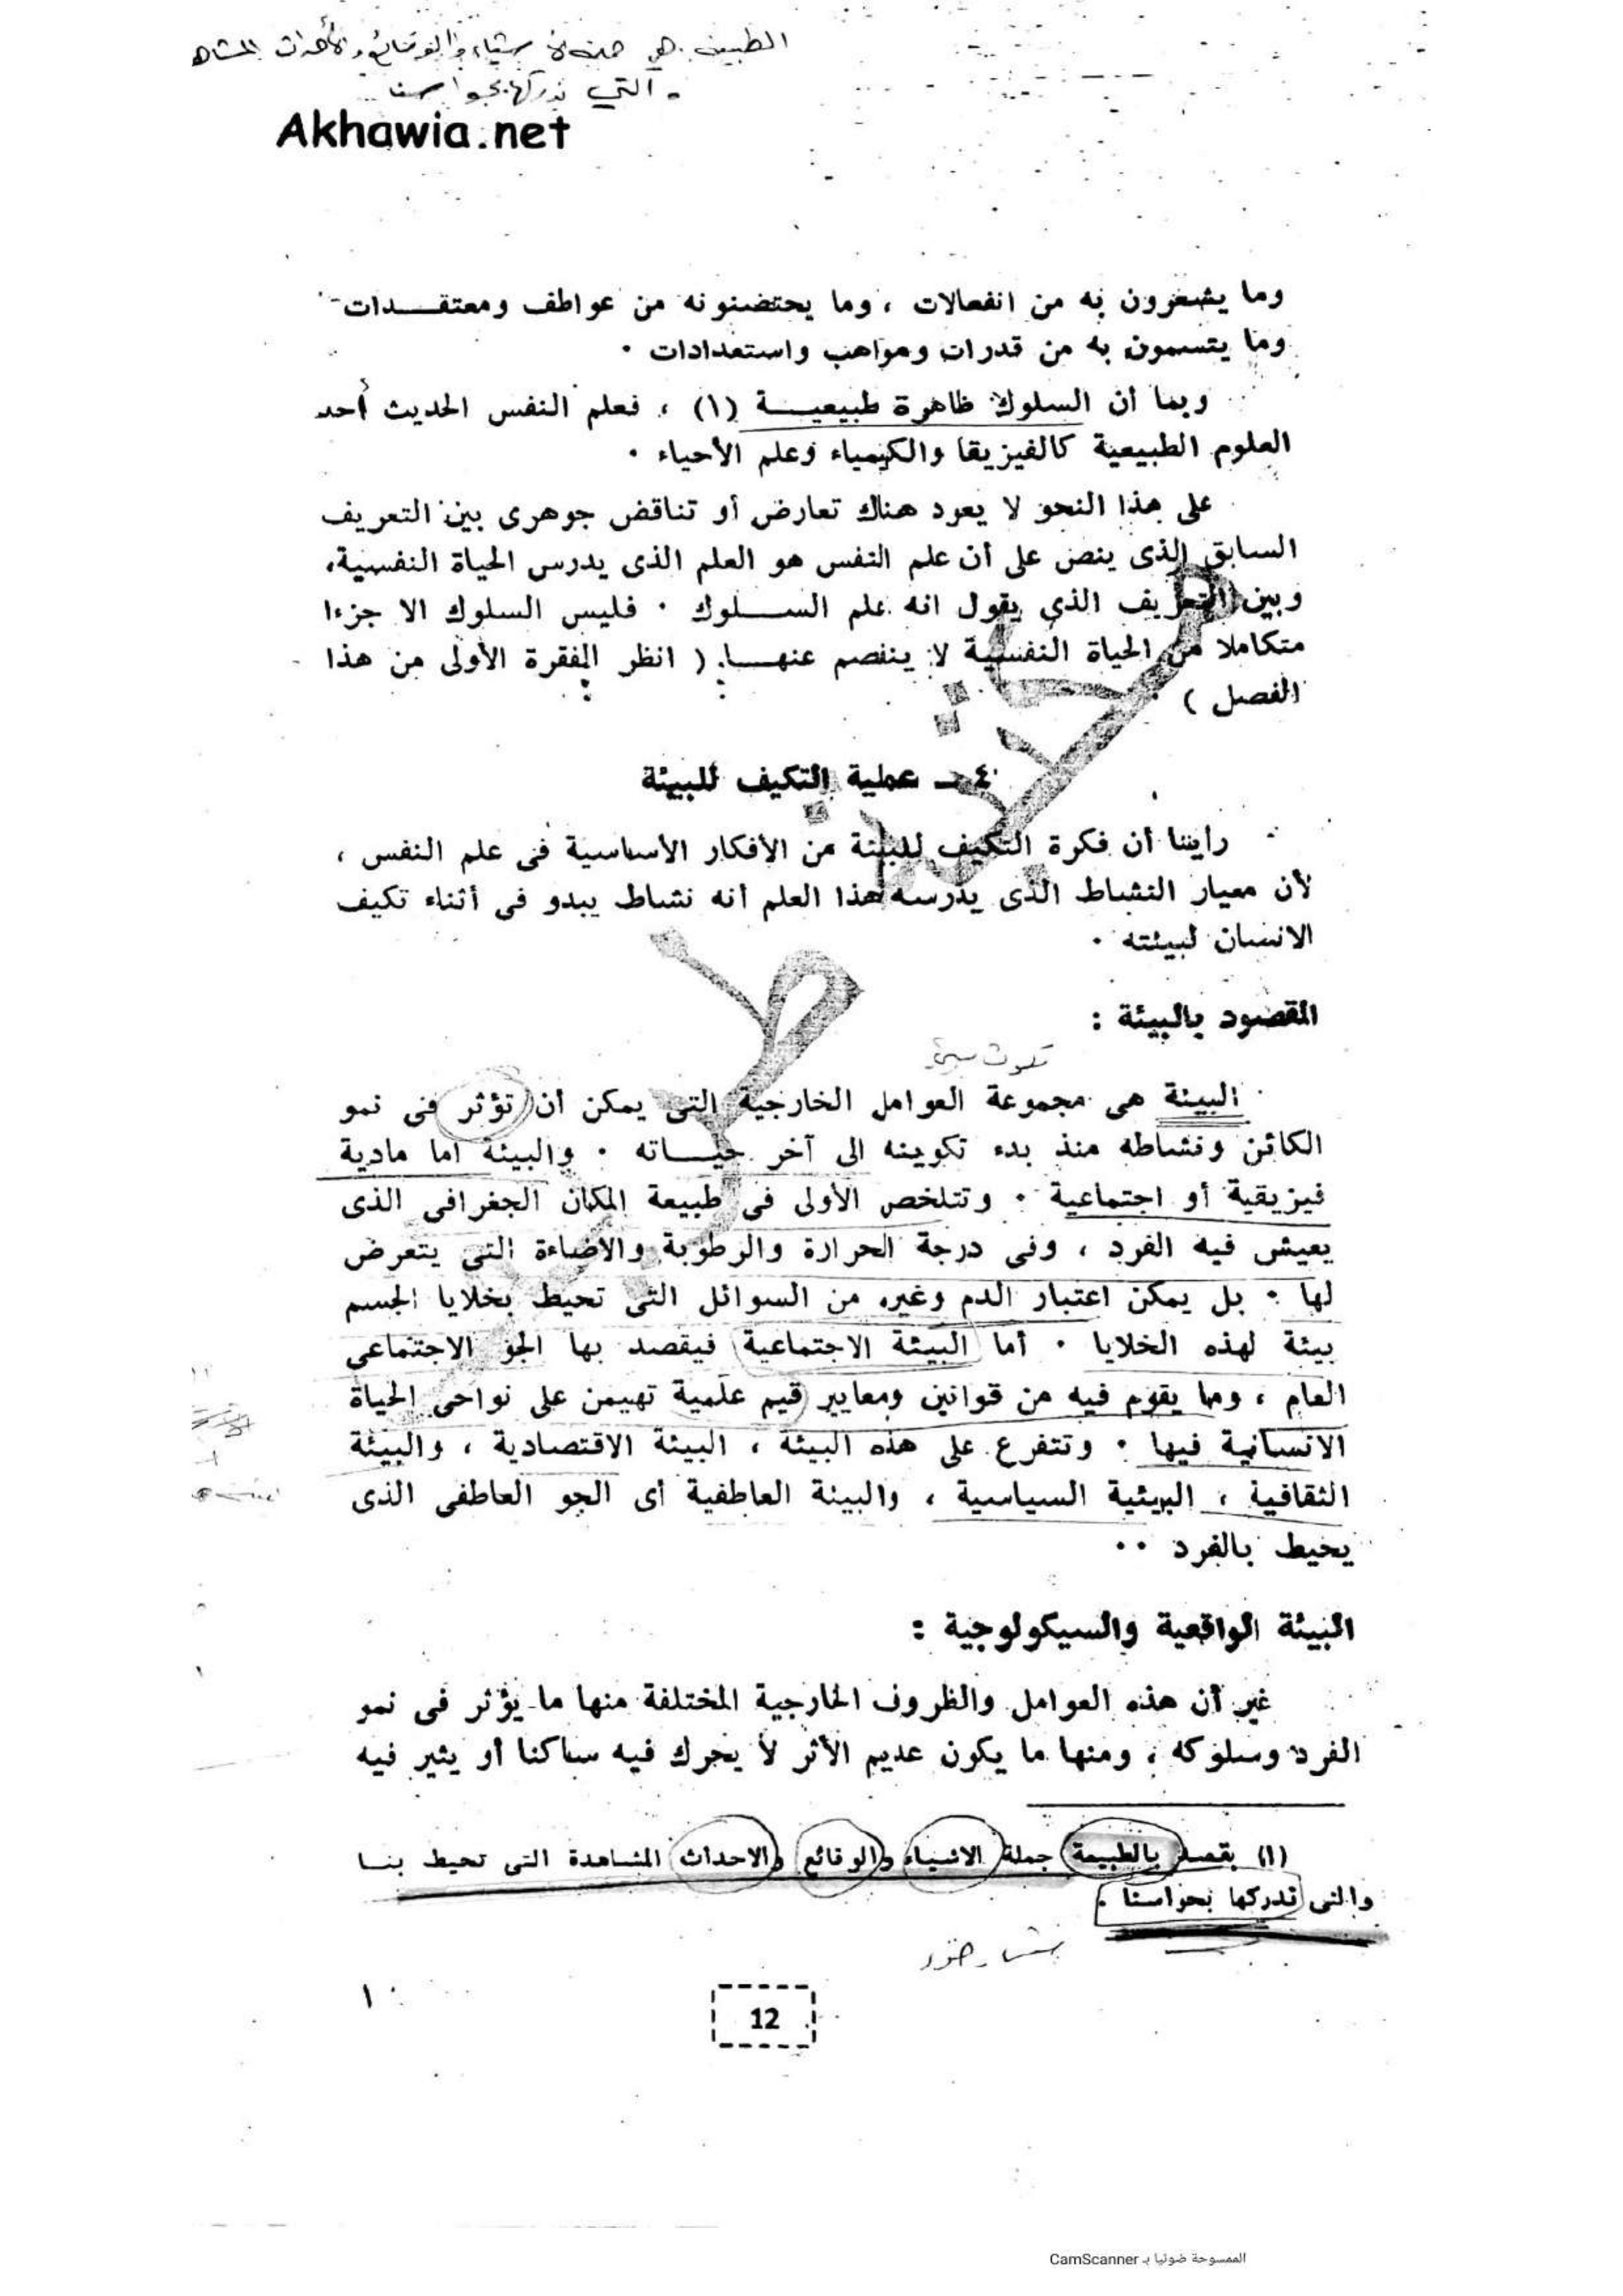 الطبيعة هي جملة الأشياء والوقائع والأحداث المشاهدة
والتي ندركها بحواسنا
Akhawia.net
وما يشعرون به من انفعالات ، وما يحتضنونه من عواطف ومعتقـــدات
وما يتسمون به من قدرات ومواهب واستعدادات ٠
وبما أن السلوك ظاهرة طبيعيــة (١) ، فعلم النفس الحديث أحد
العلوم الطبيعية كالفيزيقا والكيمياء وعلم الأحياء ٠
على هذا النحو لا يعود هناك تعارض أو تناقض جوهرى بين التعريف
السابق الذى ينص على أن علم النفس هو العلم الذى يدرس الحياة النفسية،
وبين التعريف الذى يقول انه علم الســـلوك ٠ فليس السلوك الا جزءا
متكاملا من الحياة النفسية لا ينفصم عنهــا. ( انظر الفقرة الأولى من هذا
الفصل )
٤ ــ عملية التكيف للبيئة
رأينا أن فكرة التكيف للبيئة من الأفكار الأساسية فى علم النفس ،
لأن معيار النشاط الذى يدرسه هذا العلم أنه نشاط يبدو فى أثناء تكيف
الانسان لبيئته ٠
المقصود بالبيئة :
البيئة هى مجموعة العوامل الخارجية التى يمكن أن تؤثر فى نمو
الكائن ونشاطه منذ بدء تكوينه الى آخر حيــاته ٠ والبيئة اما مادية
فيزيقية أو اجتماعية ٠ وتتلخص الأولى فى طبيعة المكان الجغرافى الذى
يعيش فيه الفرد ، وفى درجة الحرارة والرطوبة والاضاءة التى يتعرض
لها ٠ بل يمكن اعتبار الدم وغيره من السوائل التى تحيط بخلايا الجسم
بيئة لهذه الخلايا ٠ أما البيئة الاجتماعية فيقصد بها الجو الاجتماعى
العام ، وما يقوم فيه من قوانين ومعايير قيم علمية تهيمن على نواحى الحياة
الانسانية فيها ٠ وتتفرع على هذه البيئة ، البيئة الاقتصادية ، والبيئة
الثقافية ، البيئية السياسية ، والبيئة العاطفية أى الجو العاطفى الذى
يحيط بالفرد ٠٠
البيئة الواقعية والسيكولوجية :
غير أن هذه العوامل والظروف الخارجية المختلفة منها ما يؤثر فى نمو
الفرد وسلوكه ، ومنها ما يكون عديم الأثر لا يحرك فيه ساكنا أو يثير فيه
(١) يقصد بالطبيعة جملة الاشياء والوقائع والاحداث المشاهدة التى تحيط بنــا
والتى ندركها بحواسنا .
١٠
12
الممسوحة ضوئيا بـ CamScanner